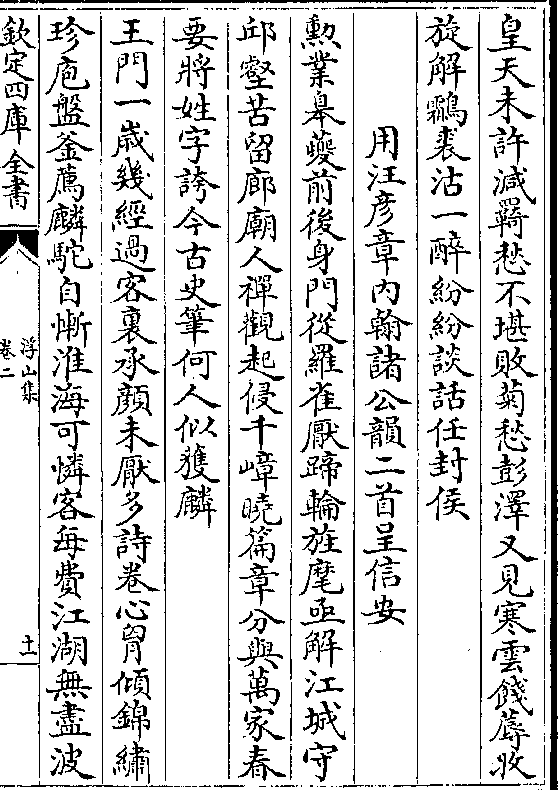 皇天未許減羇愁不堪敗菊愁彭澤又見寒雲餞蓐收
旋解鷫裘沽一醉紛紛談話任封侯
用汪彥章內翰諸公韻二首呈信安
勲業皋夔前後身門從羅雀厭蹄輪旌麾亟解江城守
邱壑苦留廊廟人禪觀起侵千嶂曉篇章分與萬家春
要將姓字誇今古史筆何人似獲麟
王門一歲幾經過客裏承顔未厭多詩卷心胷傾錦繡
珍庖盤釜薦麟駝自慚淮海可憐客每費江湖無盡波
欽定四庫全書
浮山集
卷二
十一